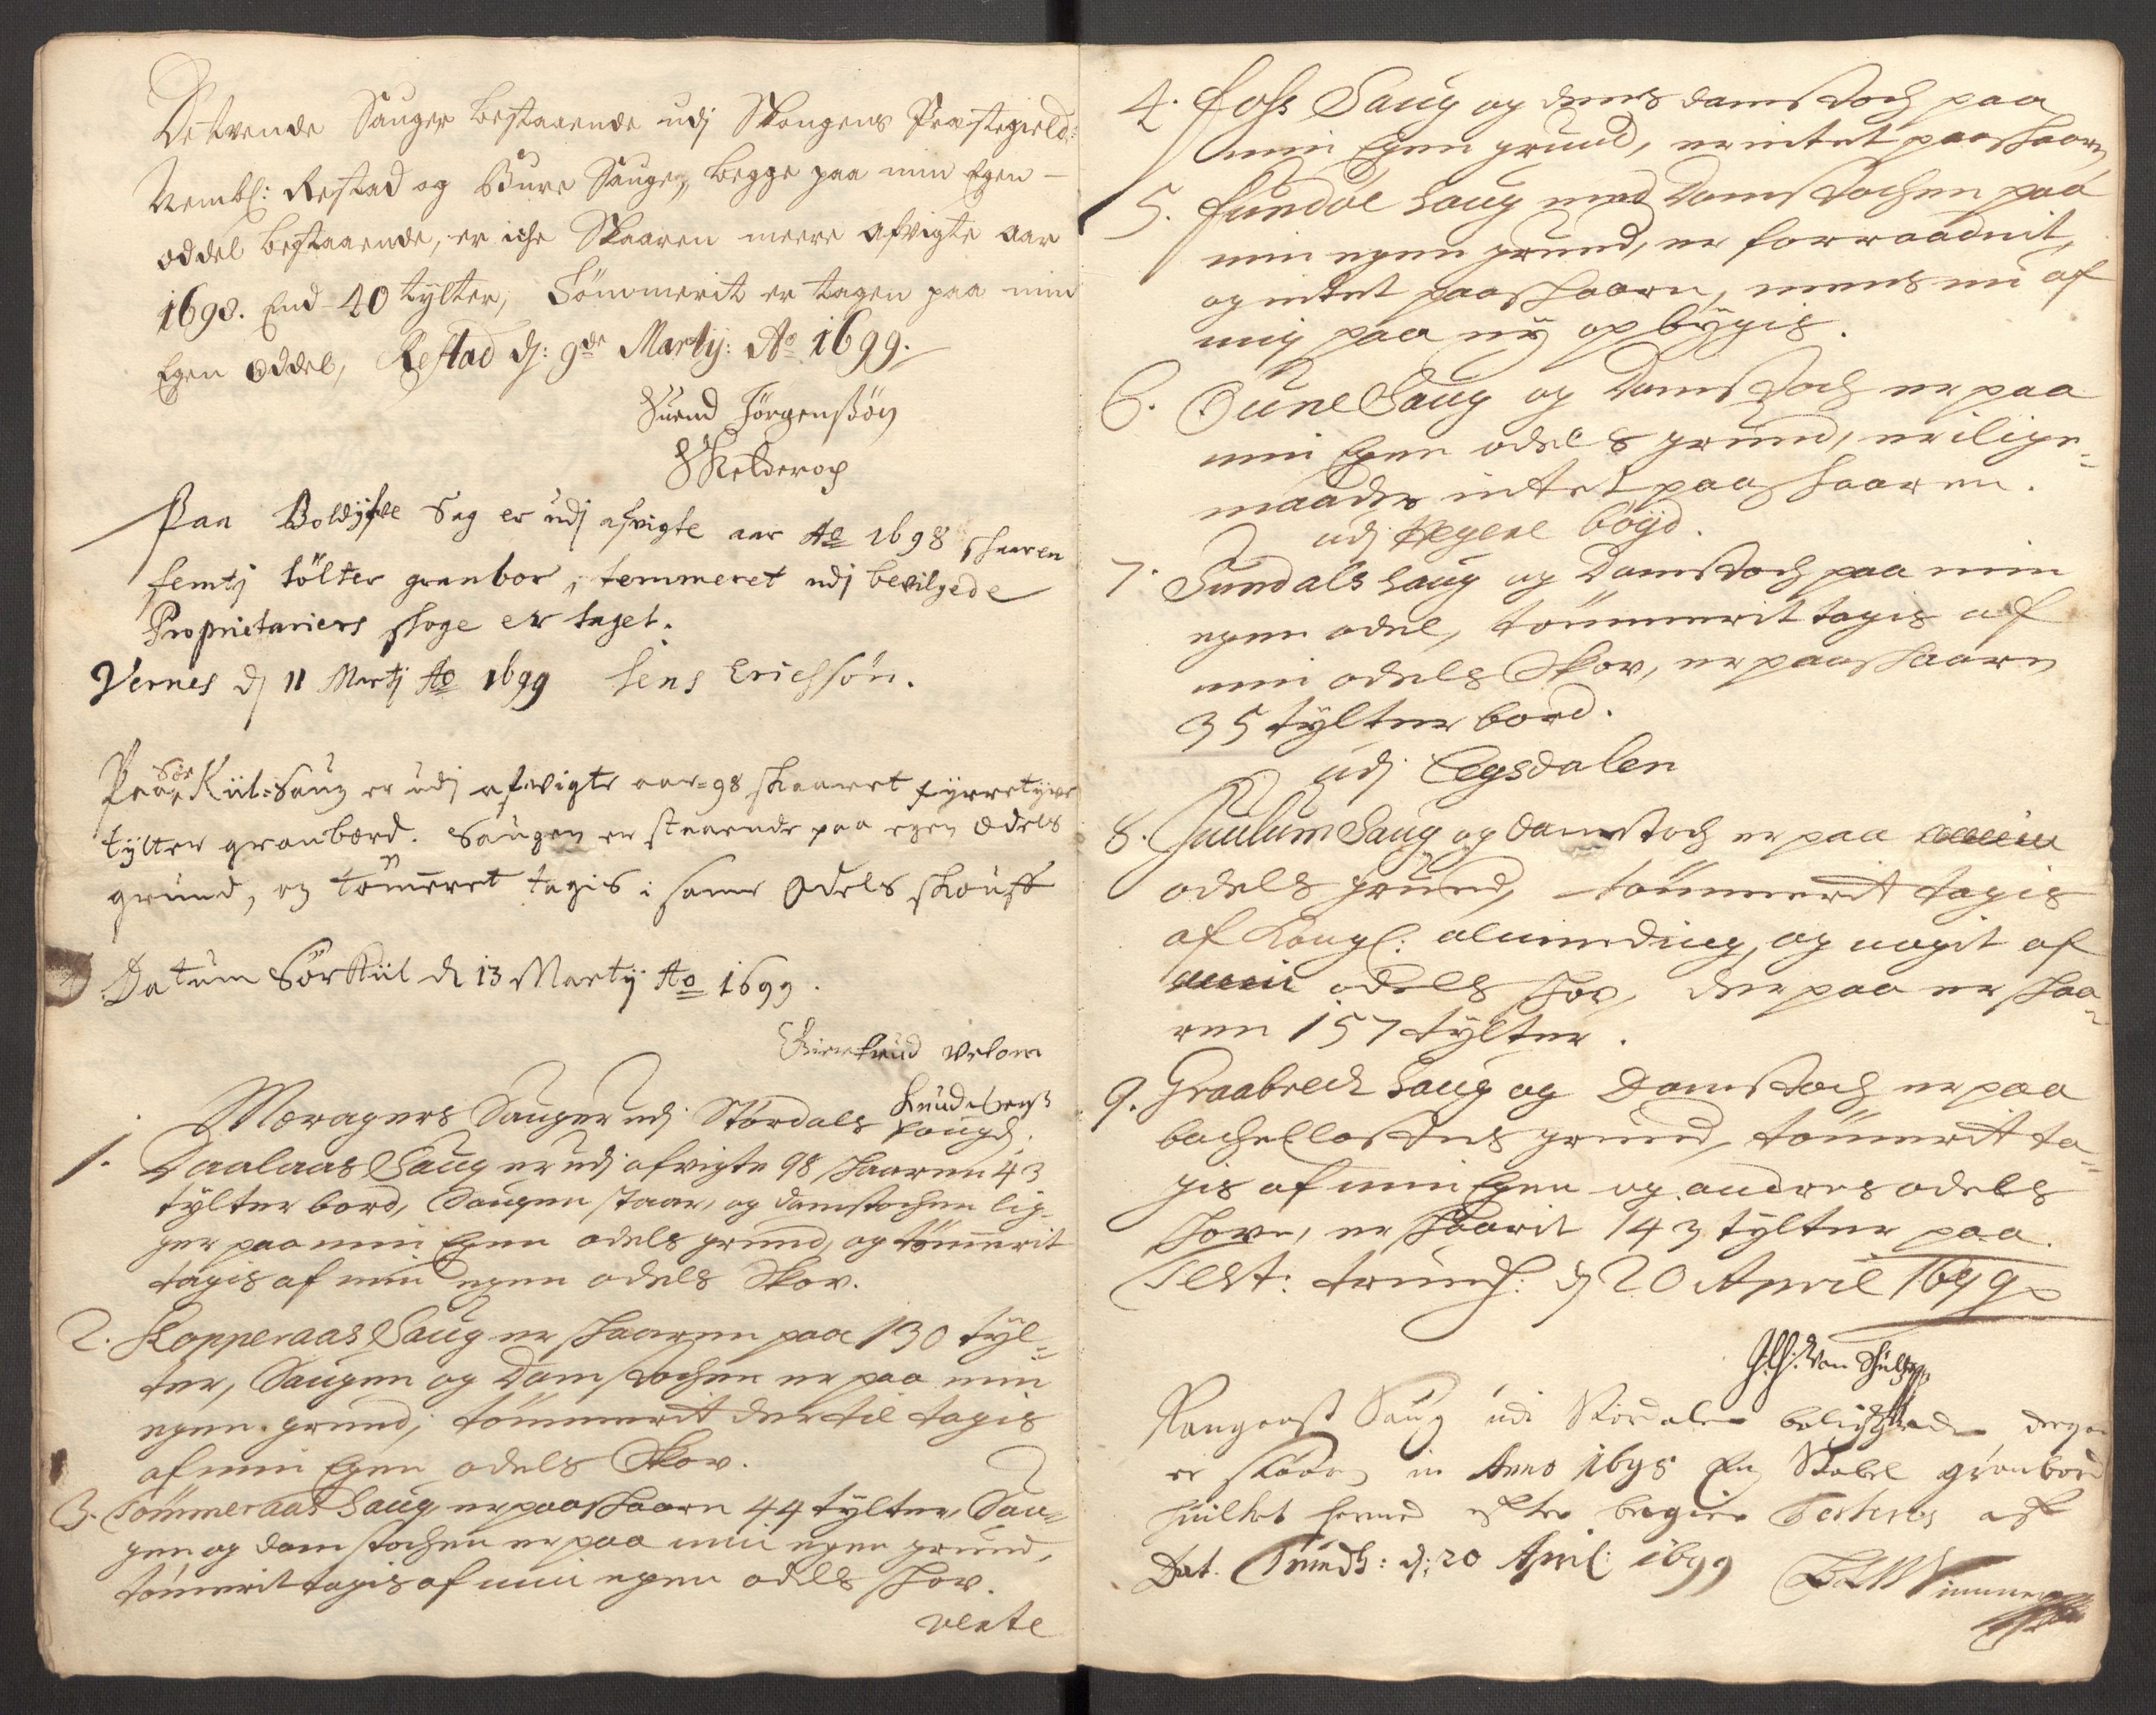 De tvende Sauger bestaaende udj Skongens Præstegield:
Nembl: Restad og Buve Sauge, begge paa min Egen
oddel bestaaende, er iche Skaaren meere afvigte aar
1698. End 40 tylter, Tömmerit er tagen paa min
Egen oddel, Restad dj: 9de Martij: Ao 1699.
Suend Jörgenssön
Paa Sag er udj afvigte aar Ao 1698 skaaren
femtj tölter granbor, temmeret udj bevilgede
Proprietariers skoge er taget.
Vernes dj 11 Martj Ao 1699 Jens Erichsön.
Paa Sör Kiil-Saug er udj afvigte aar-98 skaaret fyrretyve
tylter granbord. Saugen er staaende paa egen odels
grund, og tömeret tagis i same Odels skouff
Datum Sör Kiil d 13 Martij Ao 1699.
Giertrud
Knudsens
Meragers Sauger udj Stördals fougd:
1. Daalaas Saug er udj afvigte 98 skaaren 43
tylter bord, Saugen staar, og damstochen lig-
ger paa min Egen odels grund, og tömerit
tagis af min egen odels Skov.
2. Kopperaas Saug er skaaren paa 130 tyl-
ter, Saugen og Damstochen er paa min
egen grund, tömmerit der til tagis
af min Egen odels Skov.
3. Tömmeraas Saug er paaskaarn 44 tylter, Sau-
gen og damstochen er paa min egen grund,
tömerit tagis af min egen odels skov.
4. Foss Saug og dens damstoch paa
min Egen grund, er intet paaskaarn
5. Fundöl Saug med Damstochen paa
min egen grund, er forraadnit,
og intet paaskaarn, mens nu af
mig paa ny opbygis.
6. Saug og Damstoch er paa
min Egen odels grund, er ilige-
maader intet paaskaaren.
udj Hegere bøyd.
7. Sundals Saug og Damstoch paa min
egen odel, tömmerit tagis af
min odels Skov, er paaskaarn
35 tylter bord.
udj Legsdalen
8. Juulum Saug og damstoch er paa min
odels grund, tömmerit tagis
af Kongl: alminding, og nogit af
min odels skov, der paa er skaa-
ren 157 tylter.
9. Graabrech Saug og Damstoch er paa
grund, tömerit ta-
gis af min Egen og andres odels
skove, er skaarit 143 tylter paa.
Test: trundh: dj 20 April 1699
von Schultz
Saug udi Stördalen der paa
er skaaren in Anno 1698 granbord
huilket herved effter begier Testeres aff
Dat. Trundh: d: 20 April: 1699